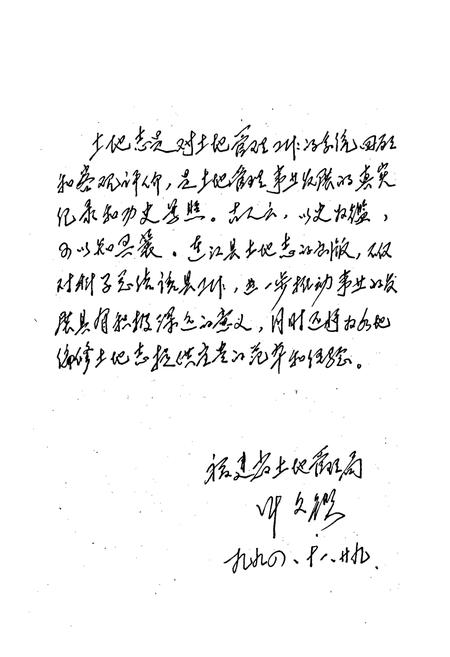 土地志是对土地管理工作的系统回顾
和客观评价，是土地管理事业发展的真实
纪录和历史写照。古人云，以史为鉴，
可以知兴衰。连江县土地志的出版，不仅
对科学总结该县工作，进一步推动事业的发
展具有积极深远的意义，同时还将为各地
编修土地志提供宝贵的范本和经验。
福建省土地管理局
叶文
九九〇、十、廿九、